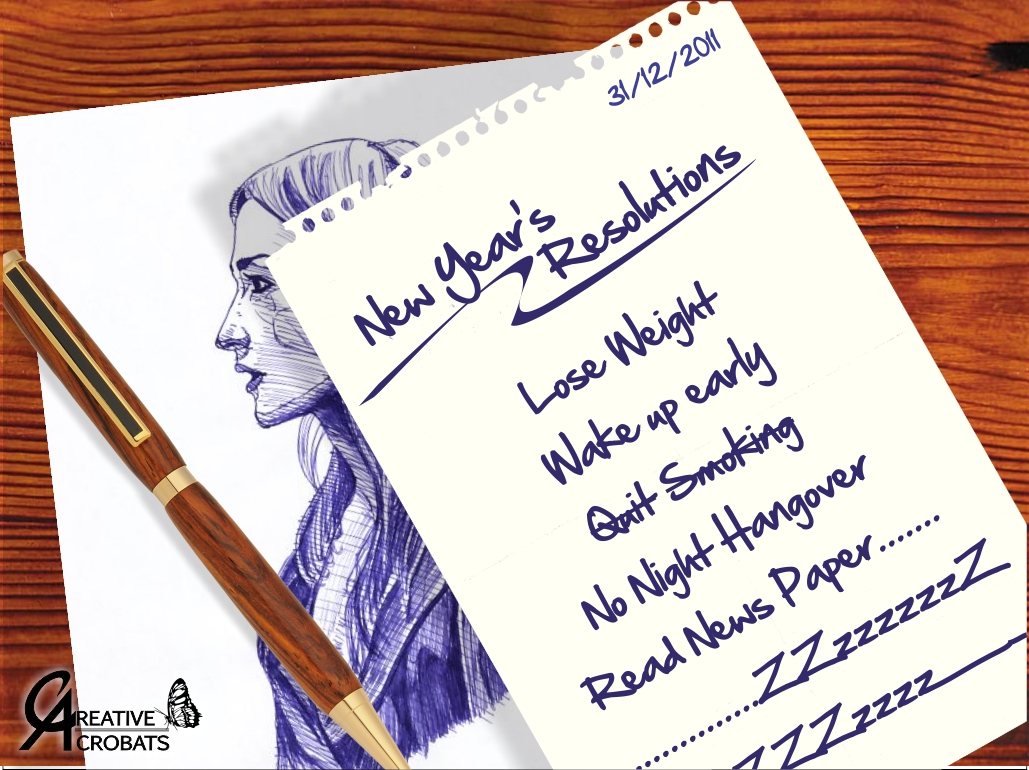 31/12/2011
New Year's
Resolutions
Lose Weight
Wake up early
Quit Smoking
No Night Hangover
Read News Paper.......
...............ZZzzzzzzzZ
ZZZzzzz
CREATIVE
ACROBATS